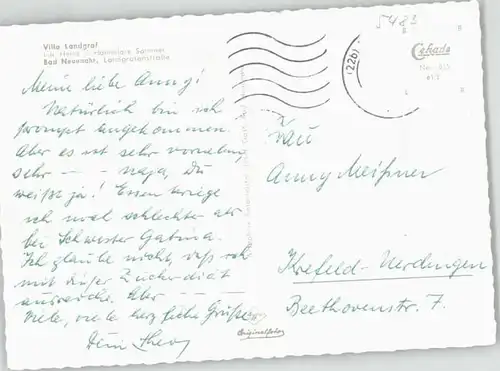 Villa Landgraf
Bad Neuenahr, Landgrafenstraße
5483
Cekade
(22b)
Meine liebe Anny!
Natürlich bin ich
prompt angekommen.
Aber es ist sehr vornehm
sehr — — naja, Du
weißt ja! Essen kriege
ich noch schlechter als
bei Schwester Gabina.
Ich glaube nicht, daß ich
mit dieser Zuckerdiät
ausreiche. Aber — — —
Viele, viele herzliche Grüße
Dein
Originalfoto
Frau
Anny Meißner
Krefeld-Uerdingen
Beethovenstr. 7.